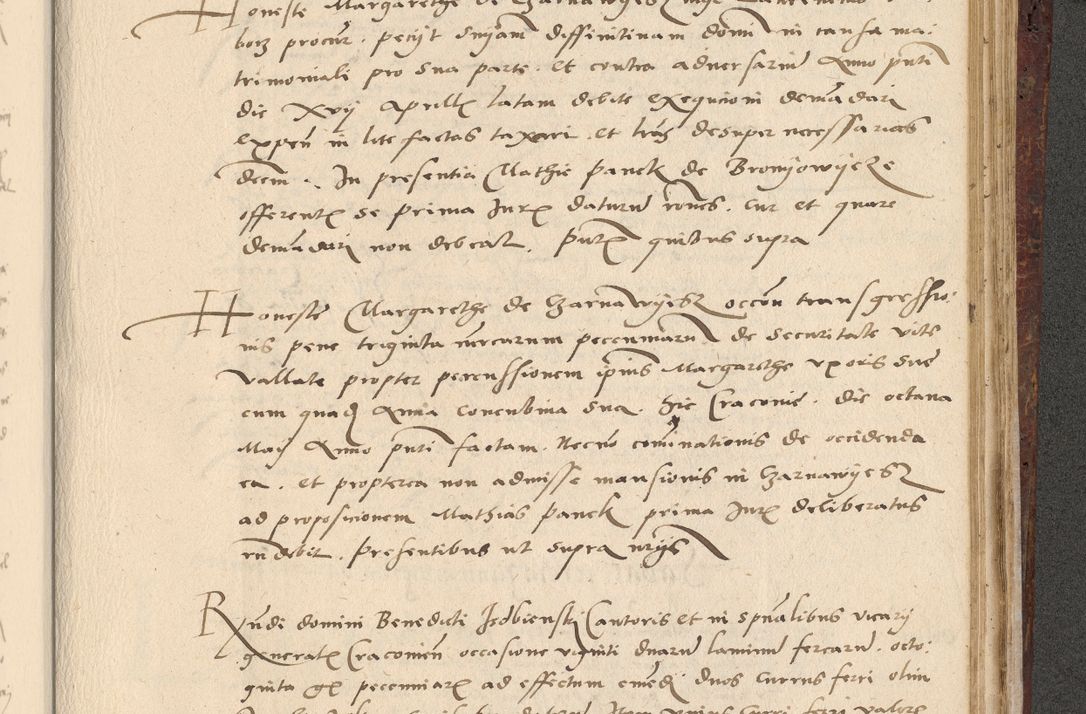 Honeste Margarethe de Czarnawyesz
borz procur. petijt sniam diffinitivam domini in causa ma:
trimoniali pro sua parte. et contra adversarium Anno pnti
die xvij Aprilis latam debite executioni demandari
expen in lite factas taxari et lras desuper necessarias
decerni. In presentia Mathie Panek de Bronyowycze
offerentis se prima Juris daturum rones. cur et quare
demandari non debeat. Pntibus quibus supra
Honeste Margarethe de Czarnawyesz occon transgressio:
nis pene triginta mrcarum pecuniarum de securitate vite
vallate propter percussionem ipius Margarethe uxoris sue
cum quadam Anna concubina sua. Hic Cracovie. die octava
Maij Anno pnti factam. Necno cominationis de occidenda
ea. et propterea non admisse mansionis in Czarnawyesz
ad propositionem Mathias Panek prima Juris deliberatus
rndebit. Presentibus ut supra
Rndi domini Benedicti Isdbienski Cantoris et in spualibus vicarij
generalis Cracovien occasione viginti duarum laminum ferearum. octo:
ginta gr pecuniarum ad effectum emendi duos currus ferri olim